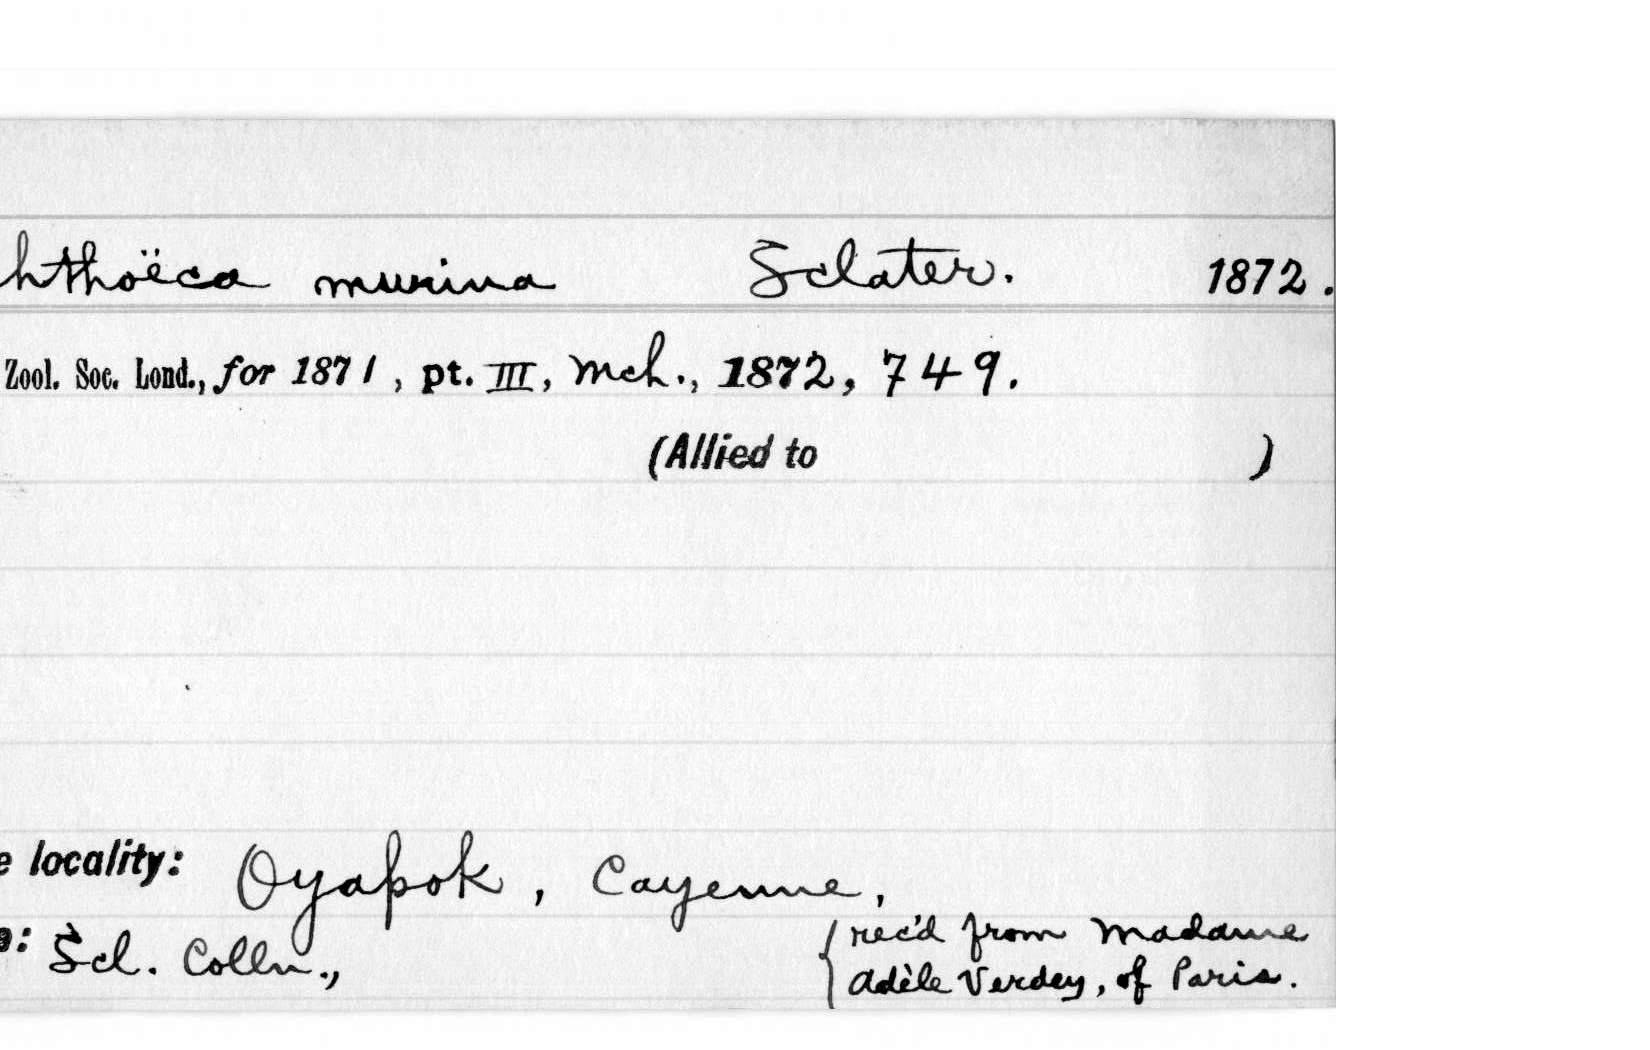 hthoëca murina Sclater. 1872.
Zool. Soc. Lond., for 1871, pt. III, Mch., 1872, 749.
(Allied to )
e locality: Oyapok, Cayenne,
o: Scl. Colln., {rec'd from Madame
Adèle Verdey, of Paris.